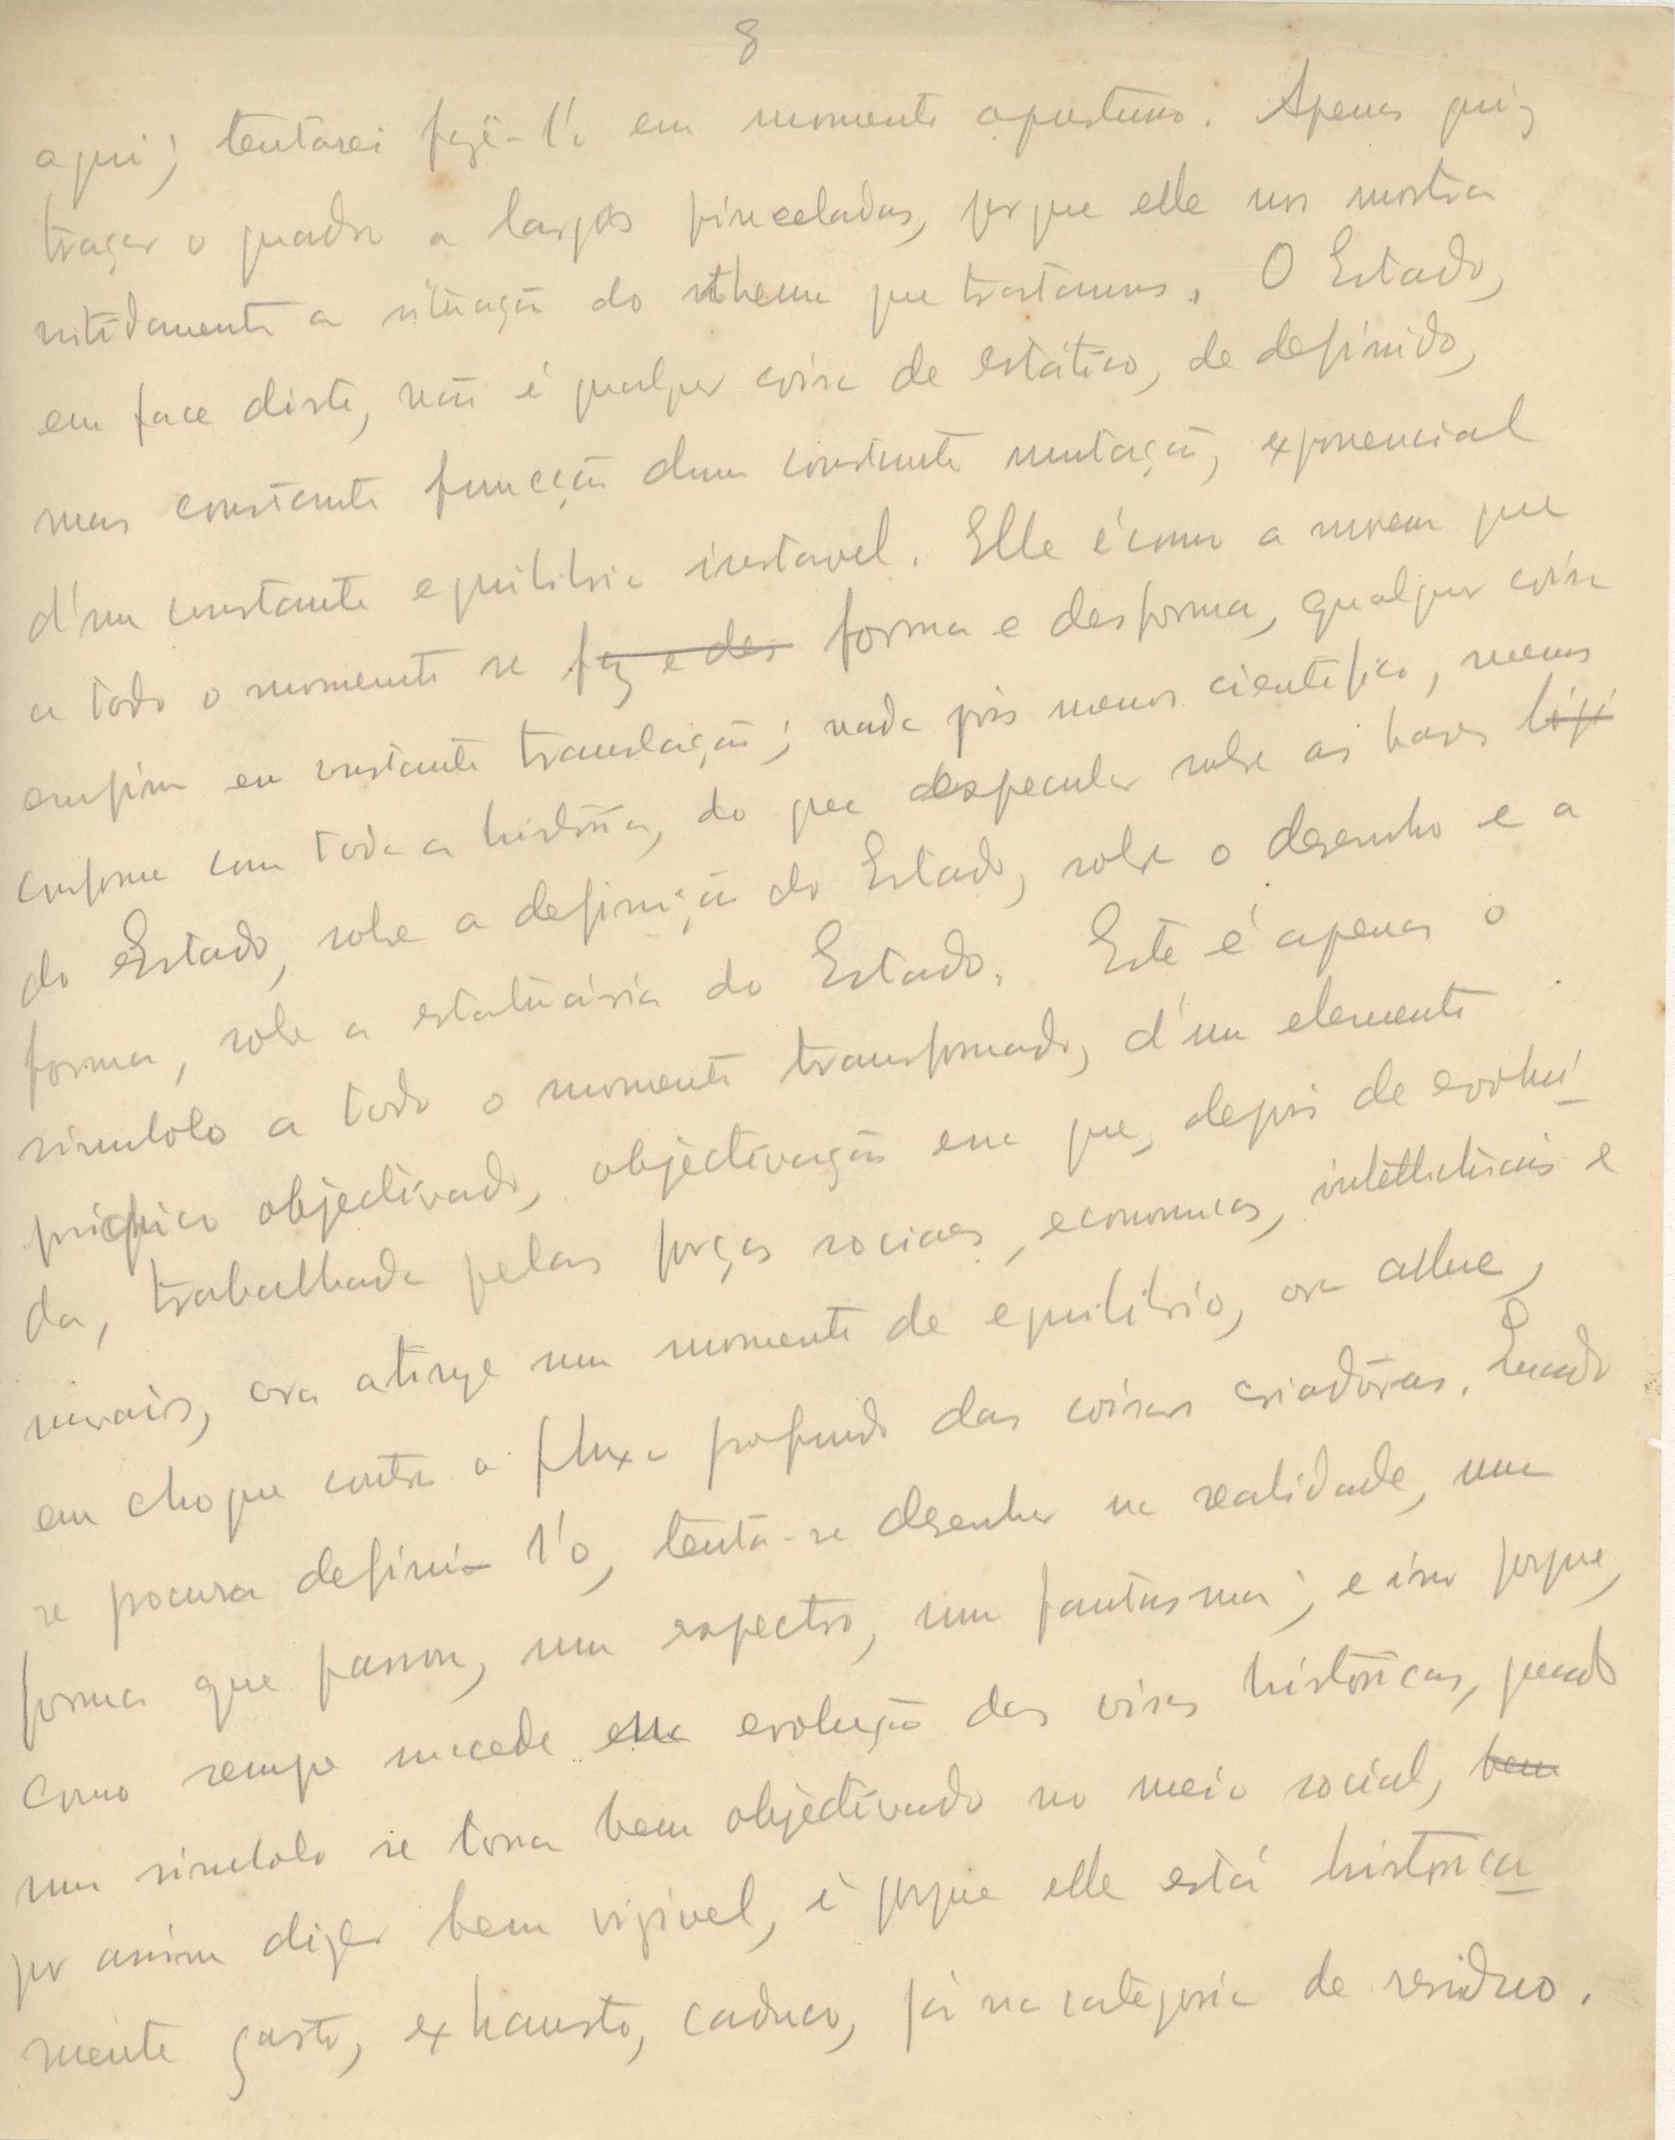 8
aqui; tentarei fazê-l'o em momento oportuno. Apenas quiz
traçar o quadro a largas pinceladas, porque elle nos mostra
nitidamente a situação do thema que tratamos. O Estado,
em face disto, não é qualquer coisa de estático, de definido,
mas constante funcção duma constante mutação, exponencial
d'um constante equilibrio instavel. Elle é como a nuvem que
a todo o momento se faz e des forma e desforma, qualquer coisa
emfim em constante translação; nada pois menos cientifico, menos
conforme com toda a história, do que especular sobre as bases lógi
do Estado, sobre a definição do Estado, sobre o desenho e a
forma, sobre a estatuária do Estado. Este é apenas o
simbolo a todo o momento transformado, d'um elemento
psiquico objectivado, objectivação em que, depois de evolui-
da, trabalhada pelas forças sociaes, economicas, intellectuais e
morais, ora atinge um momento de equilibrio, ora
em choque contra o fluxo profundo das coisas criadôras. Quando
se procura defini-l'o, tenta-se desenhar na realidade, uma
forma que passou, um espectro, um fantasma; e isso porque,
como sempre sucede na evolução das coisas históricas, quando
um simbolo se torna bem objectivado no meio social, bem
por assim dizer bem vizivel, é porque elle está historica-
mente gasto, exhausto, caduco, já na categoria de residuo.